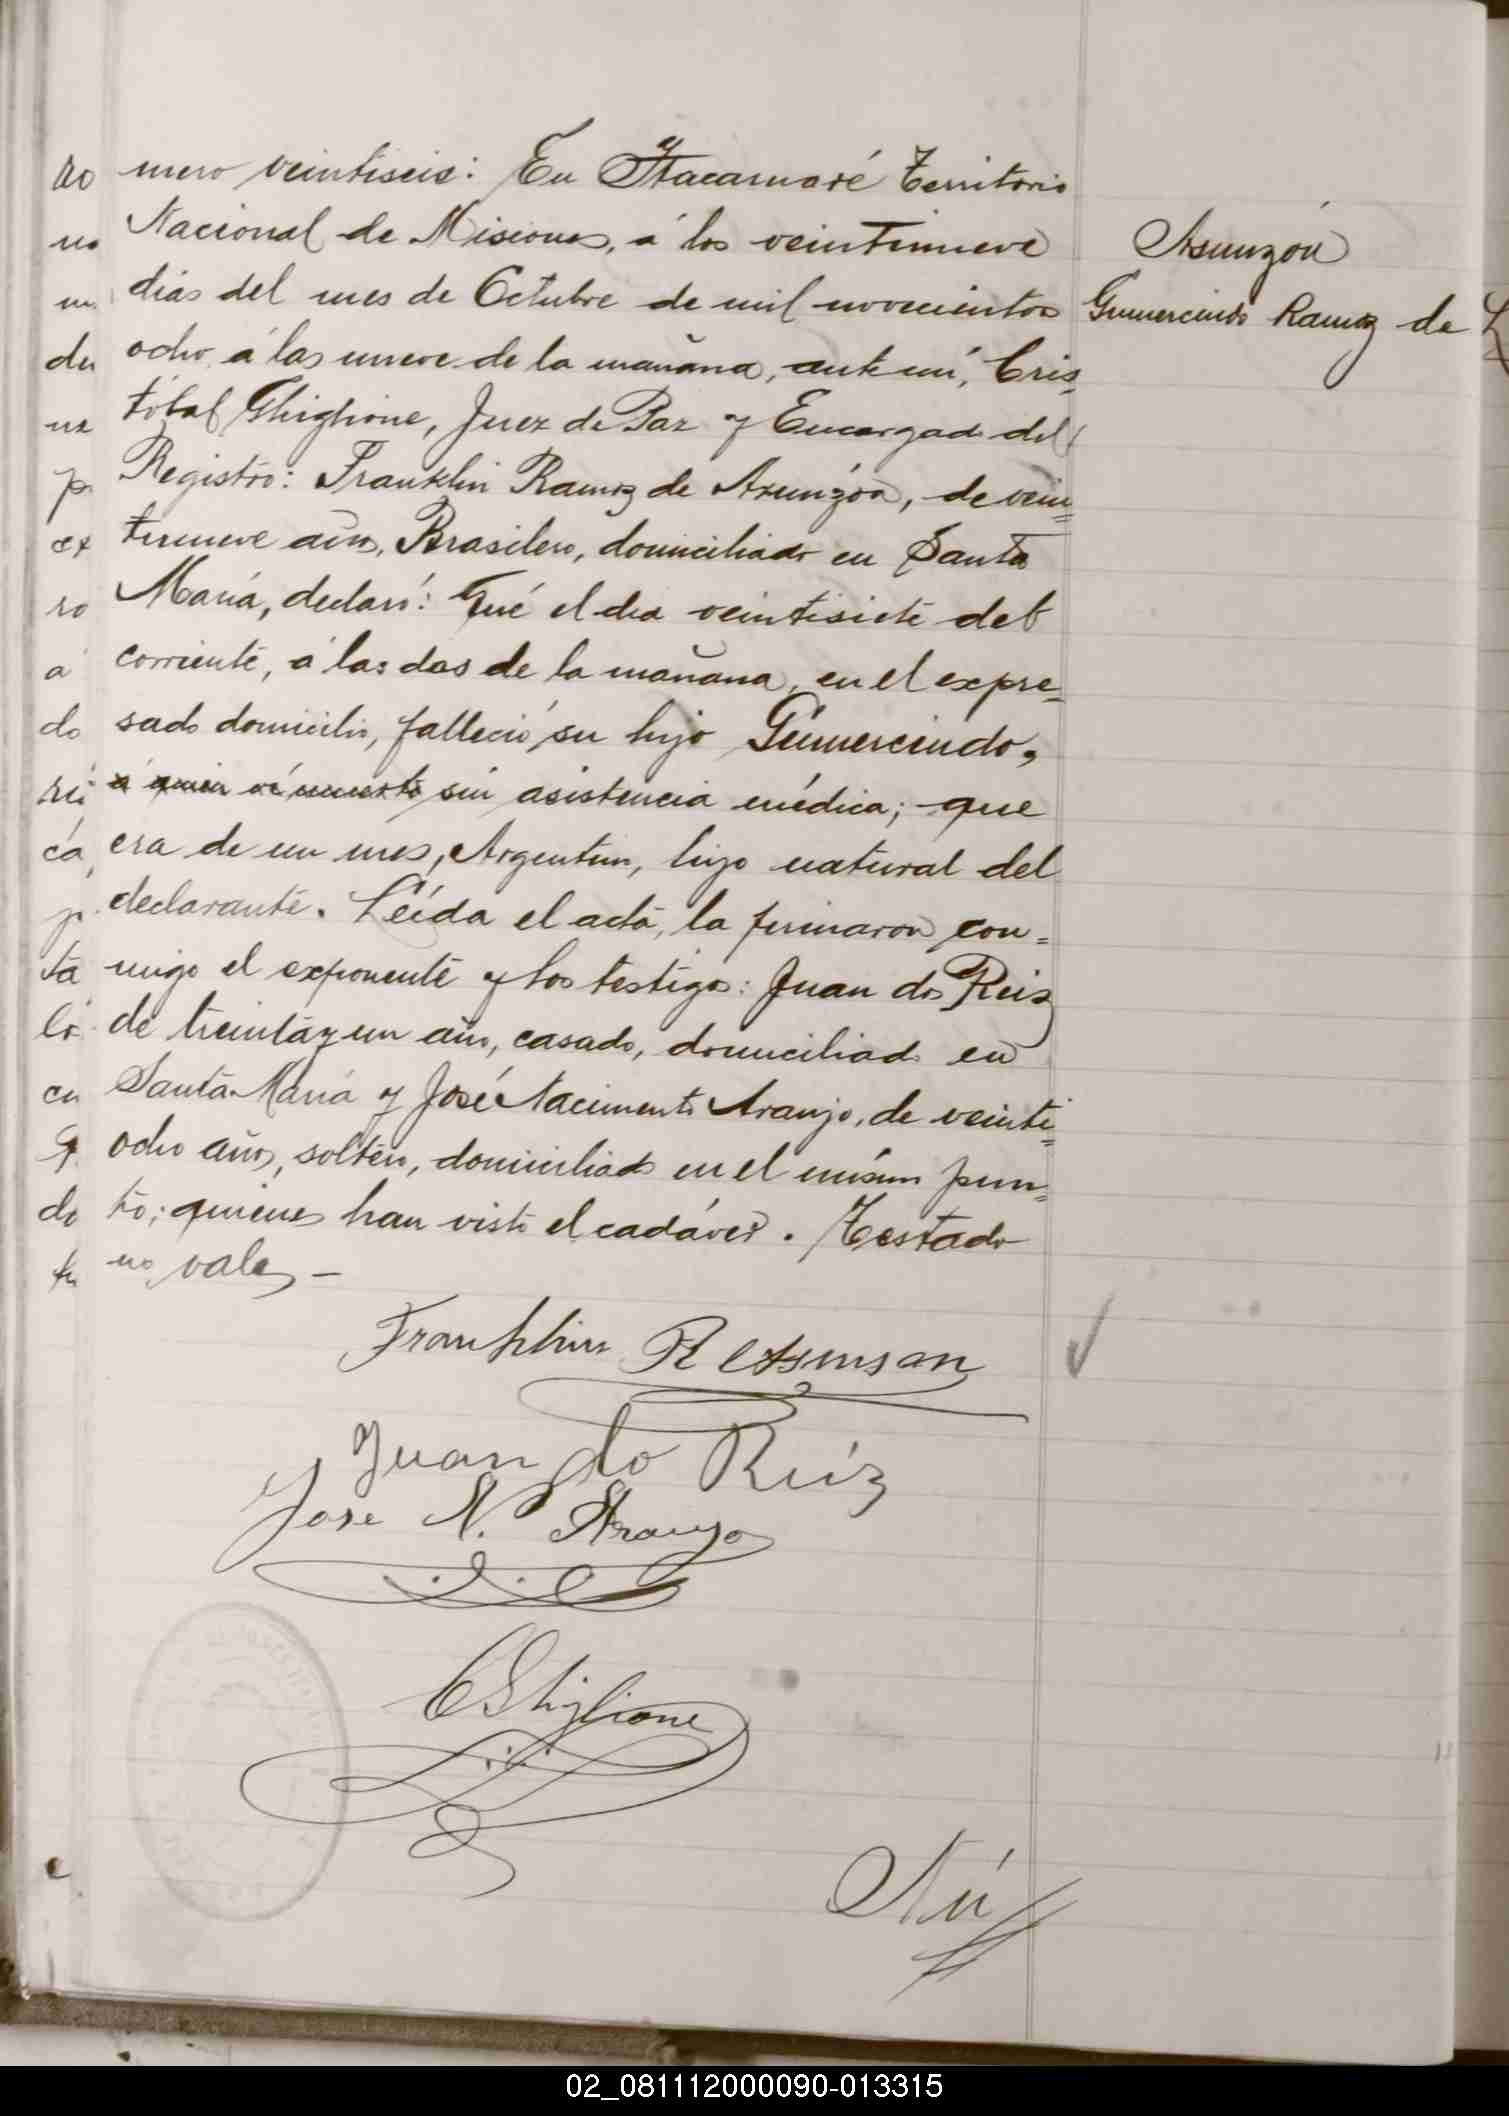 mero veintiseis: En Ytacaruaré Territorio
Nacional de Misiones, á los veintinueve
dias del mes de Octubre de mil novecientos
ocho á las nueve de la mañana, ante mí, Cris-
tóbal Ghiglione, Juez de Paz y Encargado del
Registro: Franklin Ramoz de Asunzón, de vein=
tinueve años, Brasilero, domiciliado en Santa
María, declaró: Qué el dia veintisiete del
corriente, á las dos de la mañana, en el expre-
sado domicilio, falleció su hijo Gumercindo,
á quien ví muerto sin asistencia médica; que
era de un mes, Argentino, hijo natural del
declarante. Leída el acta, la firmaron con=
migo el exponente y los testigos: Juan dos Reis
de treinta y un años, casado, domiciliado en
Santa María y José Nacimento Araujo, de veinti=
ocho años, soltero, domiciliado en el mismo pun=
to; quienes han visto el cadáver. Testado
no vale, -
Asunzón
Gumercindo Ramoz de
Franklin R Assunsan
Juan do Ruiz
Jose N. Araujo
C Ghiglione
Nú
ro
no
m
du
na
p.
ex
ro
a
do
rei
ca,
p.
ta
lo
en
q
do
tu
02_081112000090-013315